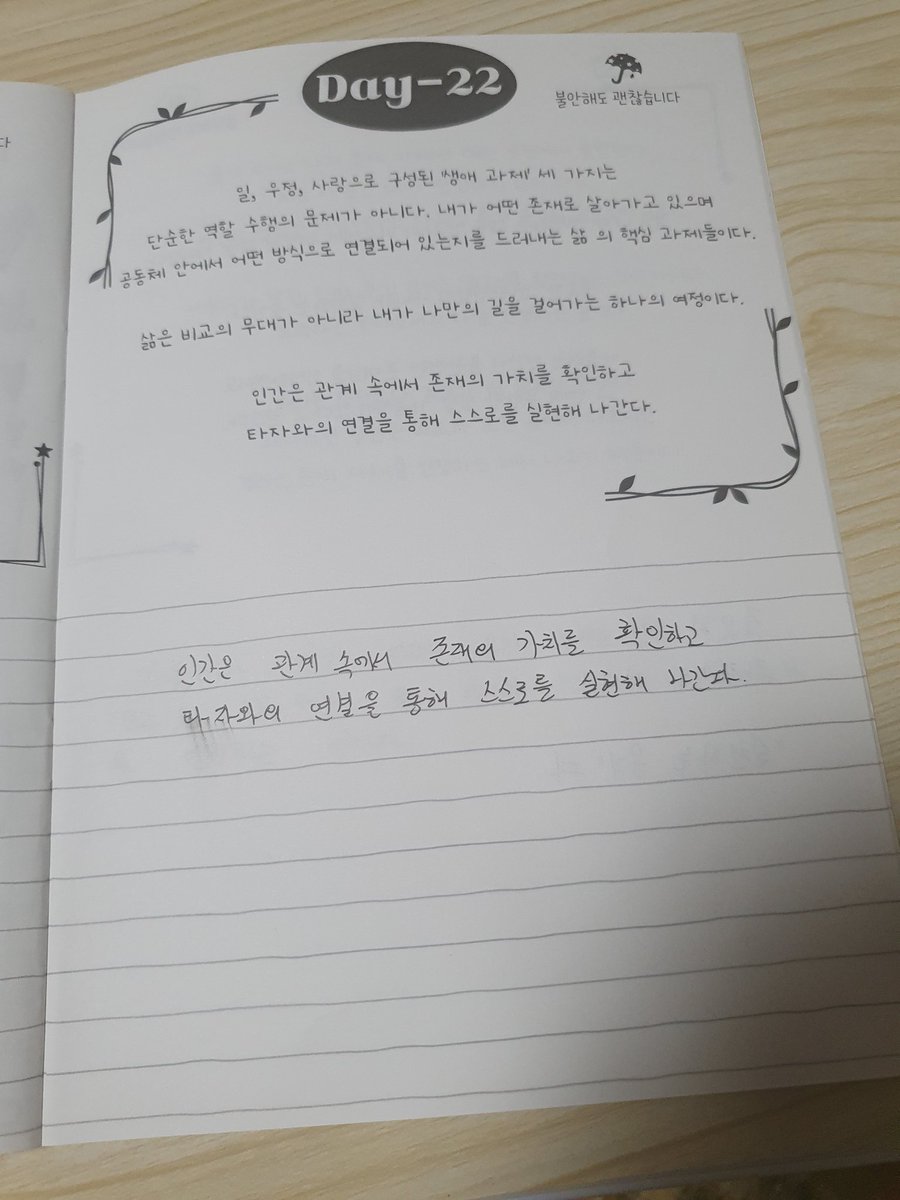 다
Day-22
불안해도 괜찮습니다
일, 우정, 사랑으로 구성된 '생애 과제' 세 가지는
단순한 역할 수행의 문제가 아니다. 내가 어떤 존재로 살아가고 있으며
공동체 안에서 어떤 방식으로 연결되어 있는지를 드러내는 삶 의 핵심 과제들이다.
삶은 비교의 무대가 아니라 내가 나만의 길을 걸어가는 하나의 여정이다.
인간은 관계 속에서 존재의 가치를 확인하고
타자와의 연결을 통해 스스로를 실현해 나간다.
인간은 관계 속에서 존재의 가치를 확인하고
타자와의 연결을 통해 스스로를 실현해 나간다.